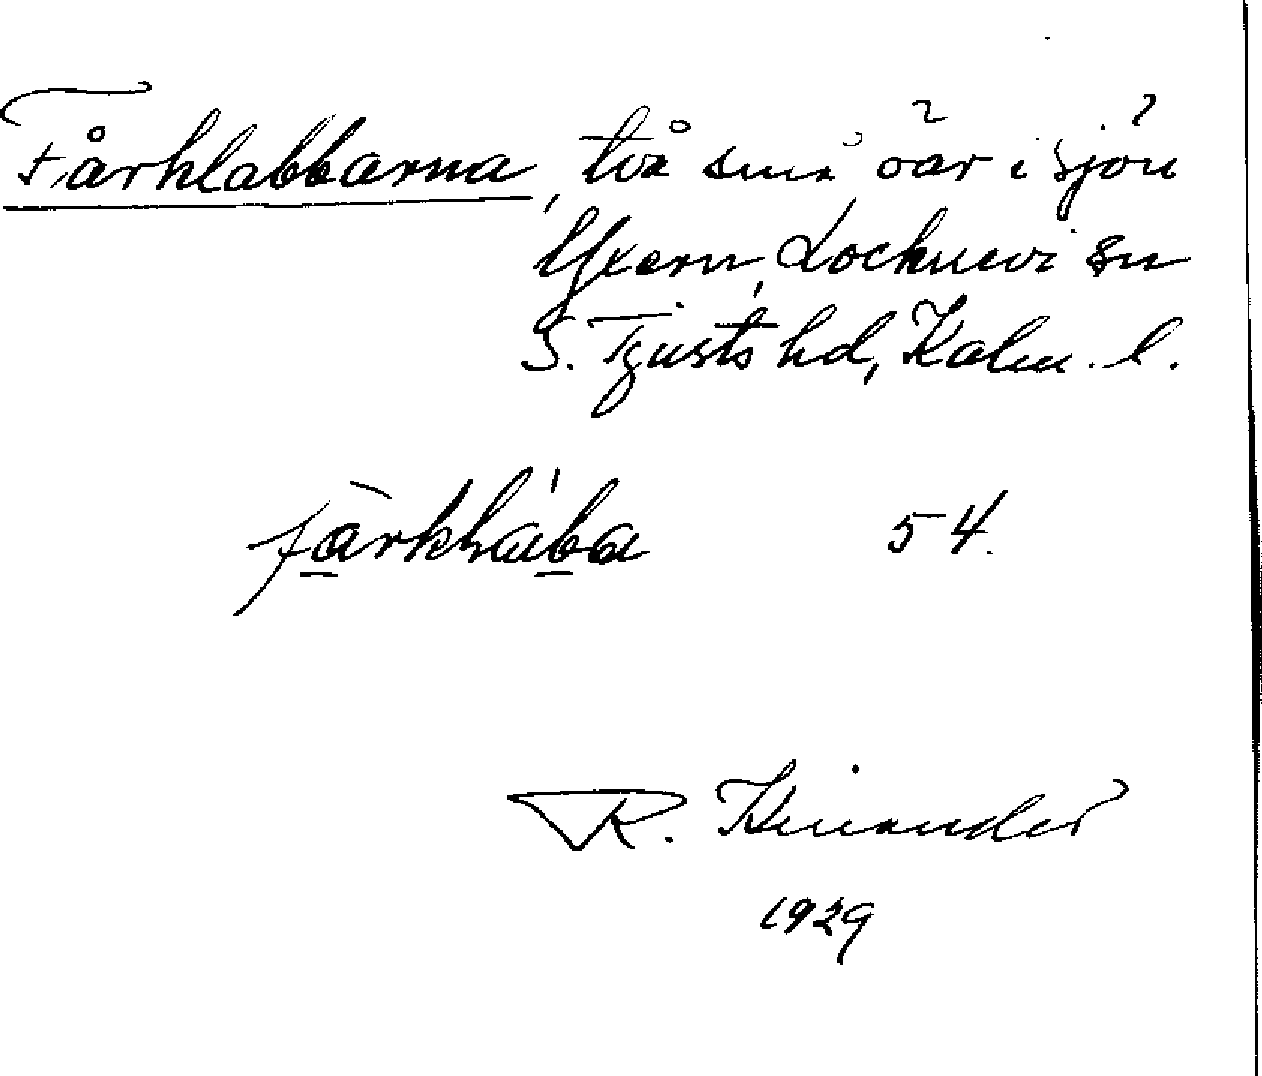 Fårklabbarna, två små öar i sjön
Yxern, Locknevi sn
S. Tjusts hd, Kalm. l.
54.
R. Kinander
1929